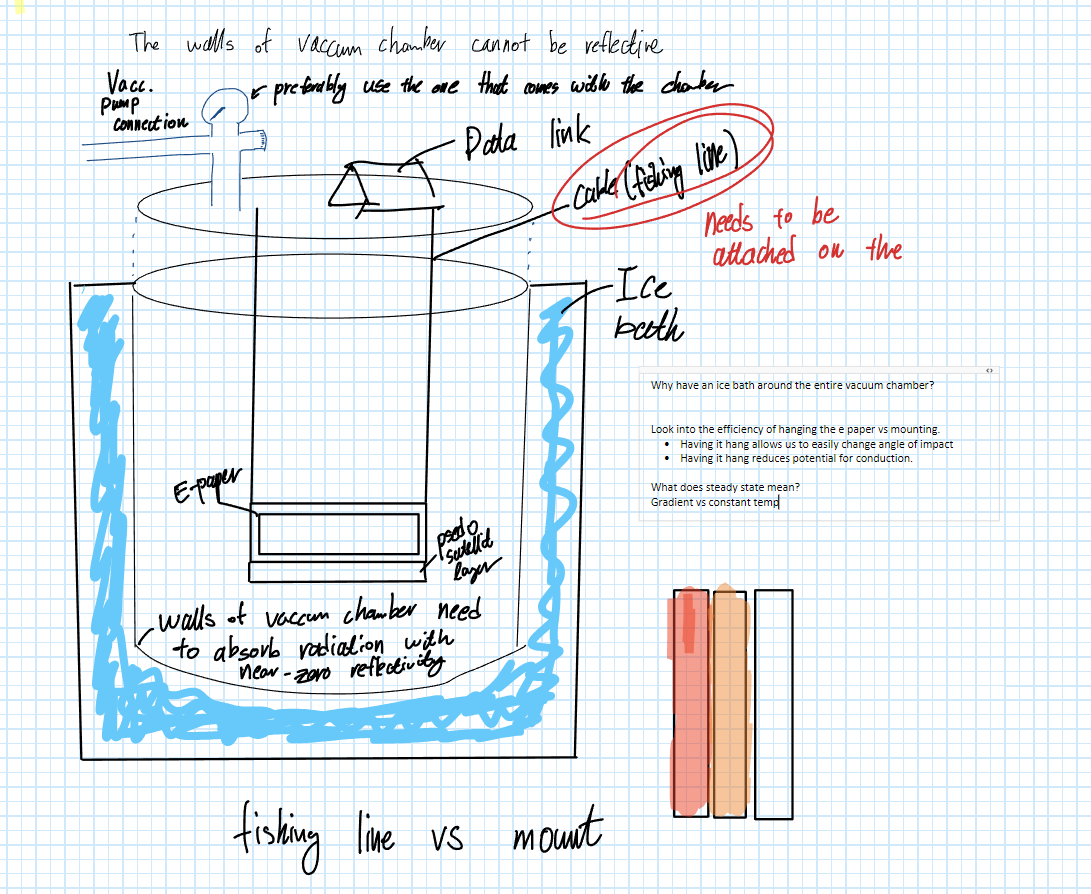 The walls of vaccum chamber cannot be reflective
Vacc.
pump
connection
preferably use the one that comes with the chamber
Data link
cable (fishing line)
needs to be
attached on the
Ice
bath
Why have an ice bath around the entire vacuum chamber?
Look into the efficiency of hanging the e paper vs mounting.
• Having it hang allows us to easily change angle of impact
• Having it hang reduces potential for conduction.
What does steady state mean?
Gradient vs constant temp
E-paper
psedo
satellid
layer
walls of vaccum chamber need
to absorb radiation with
near-zero reflectivity
fishing line vs mount